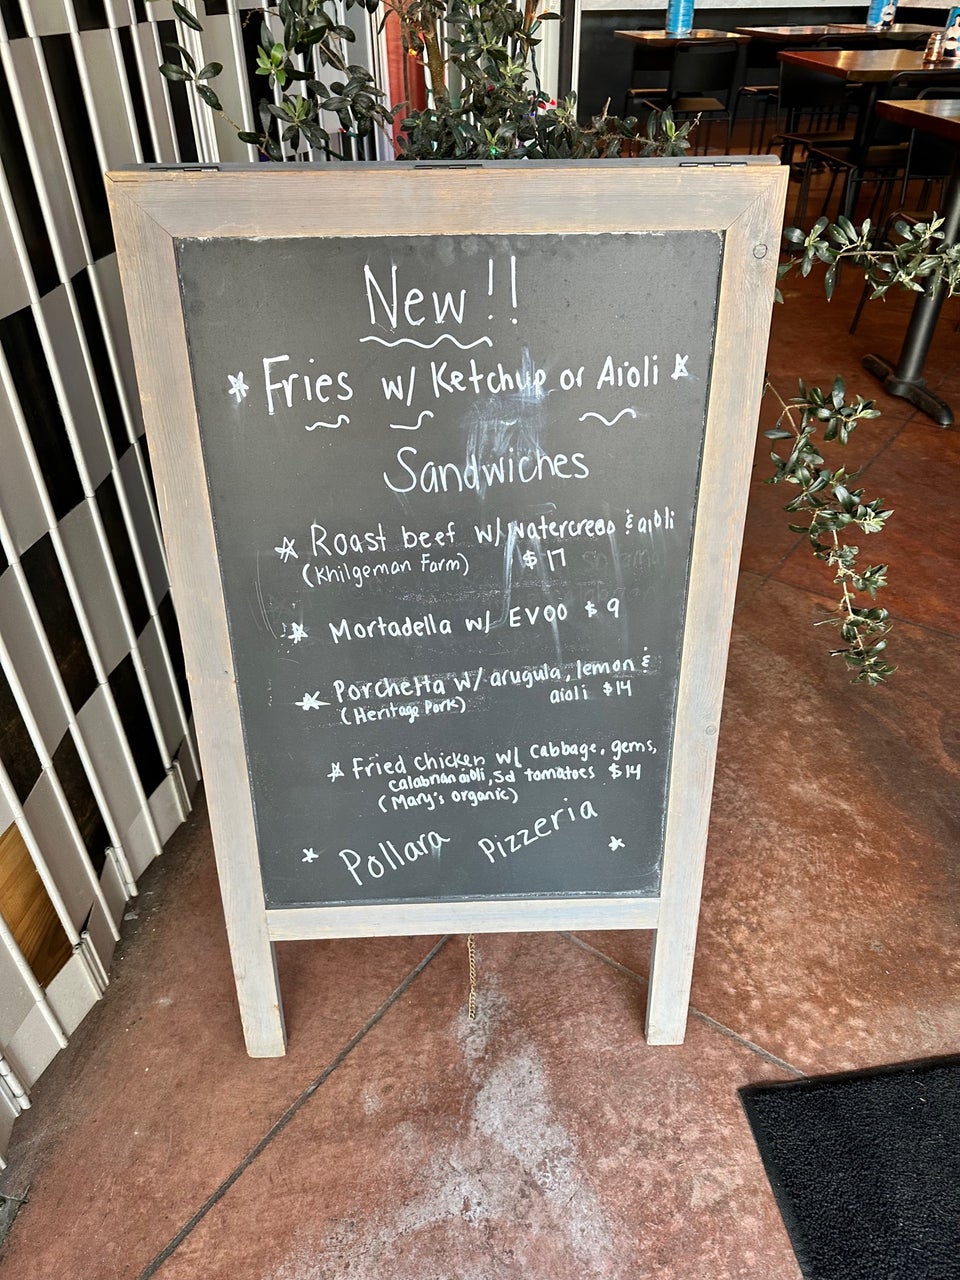 New!!
Fries w/ Ketchup or Aioli
Sandwiches
Roast beef w/ watercress & aioli
(Khilgeman Farm) $17
Mortadella w/ EVOO $9
Porchetta w/ arugula, lemon &
(Heritage Pork) aioli $14
Fried chicken w/ cabbage, gems,
calabrian aioli, sd tomatoes $14
(Mary's organic)
Pollara Pizzeria